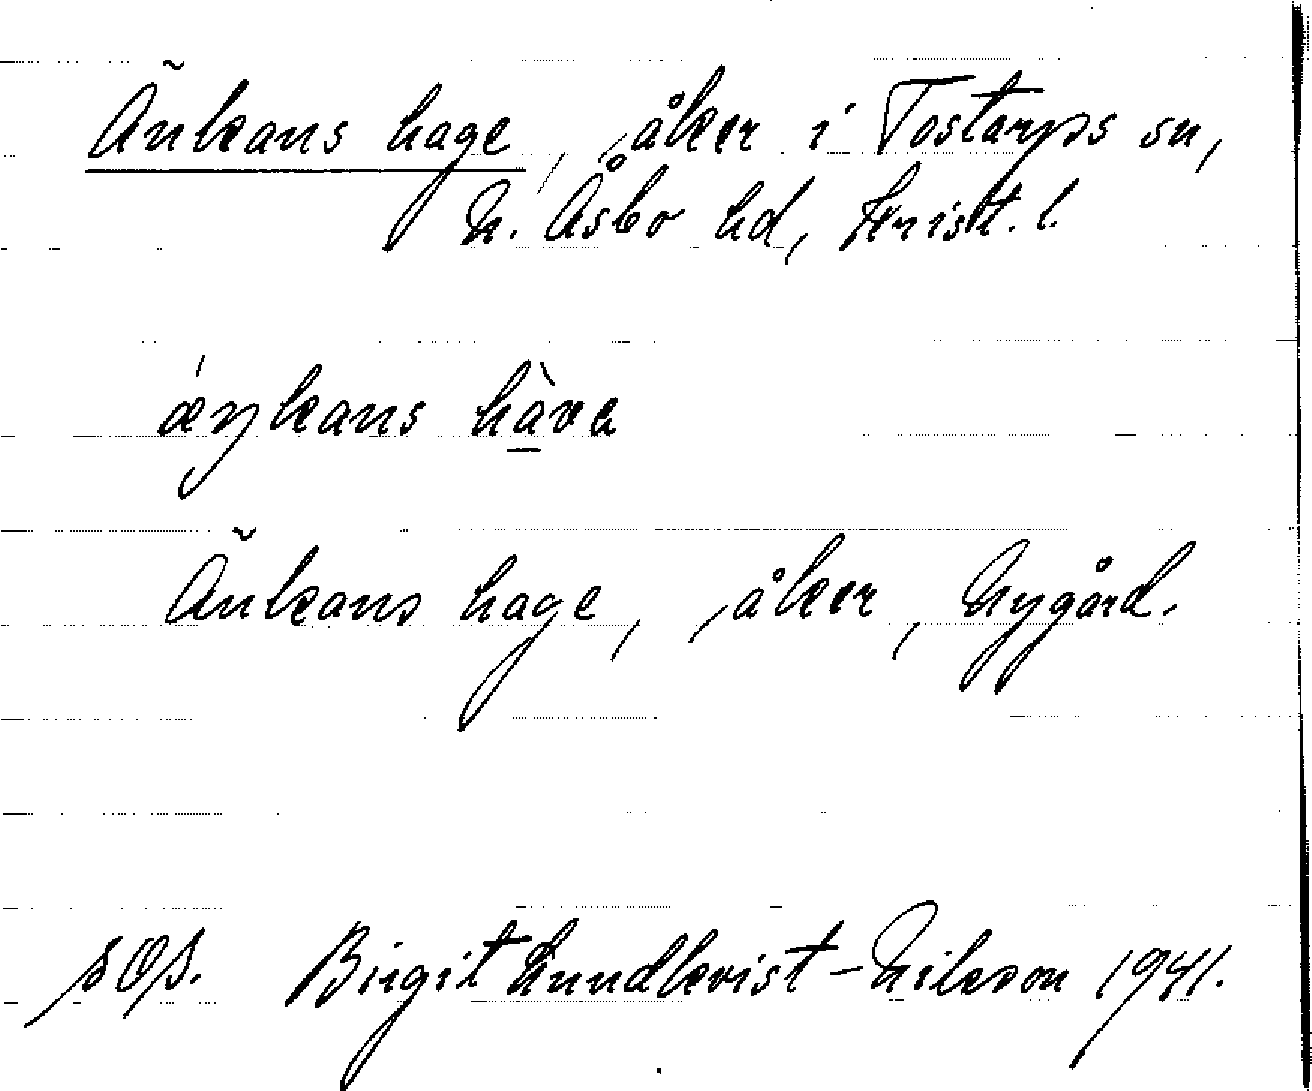 Änkans hage, åker i Tostarps sn,
N. Åsbo hd, Krist. l.
ǽŋkans hàva
Änkans hage, åker, Nygård.
Birgit Lundkvist-Nilsson 1941.